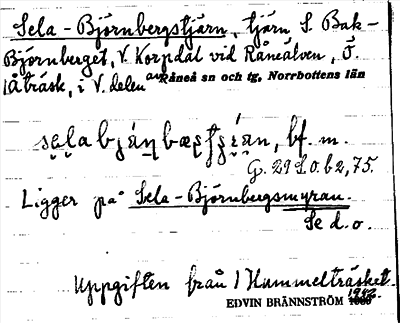 Sela-Björnbergstjärn, tjärn S. Bak-
Björnberget, V. Korpdal vid Råneälven, Ö.
Åträsk, i V. delen av Råneå sn och tg, Norrbottens län
bf. m.
G. 29 S.O. b2, 75.
Ligger på Sela-Björnbergsmyran.
Se d.o.
Uppgiften från 1 Hammelträsket.
EDVIN BRÄNNSTRÖM